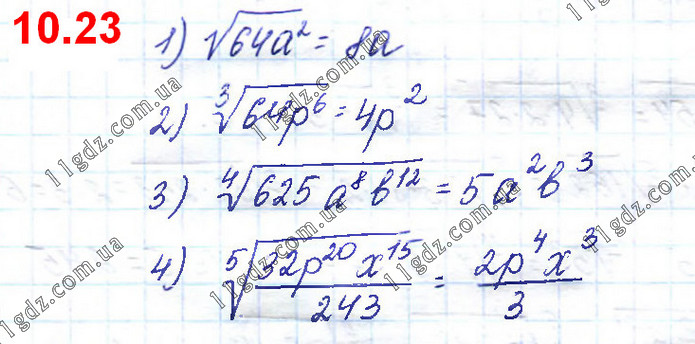 10.23
1) √64a² = 8a
2) ³√64p⁶ = 4p²
3) ⁴√625a⁸b¹² = 5a²b³
4) ⁵√32p²⁰x¹⁵/243 = 2p⁴x³/3
11gdz.com.ua
11gdz.com.ua
11gdz.com.ua
11gdz.com.ua
11gdz.com.ua
11gdz.com.ua
11gdz.com.ua